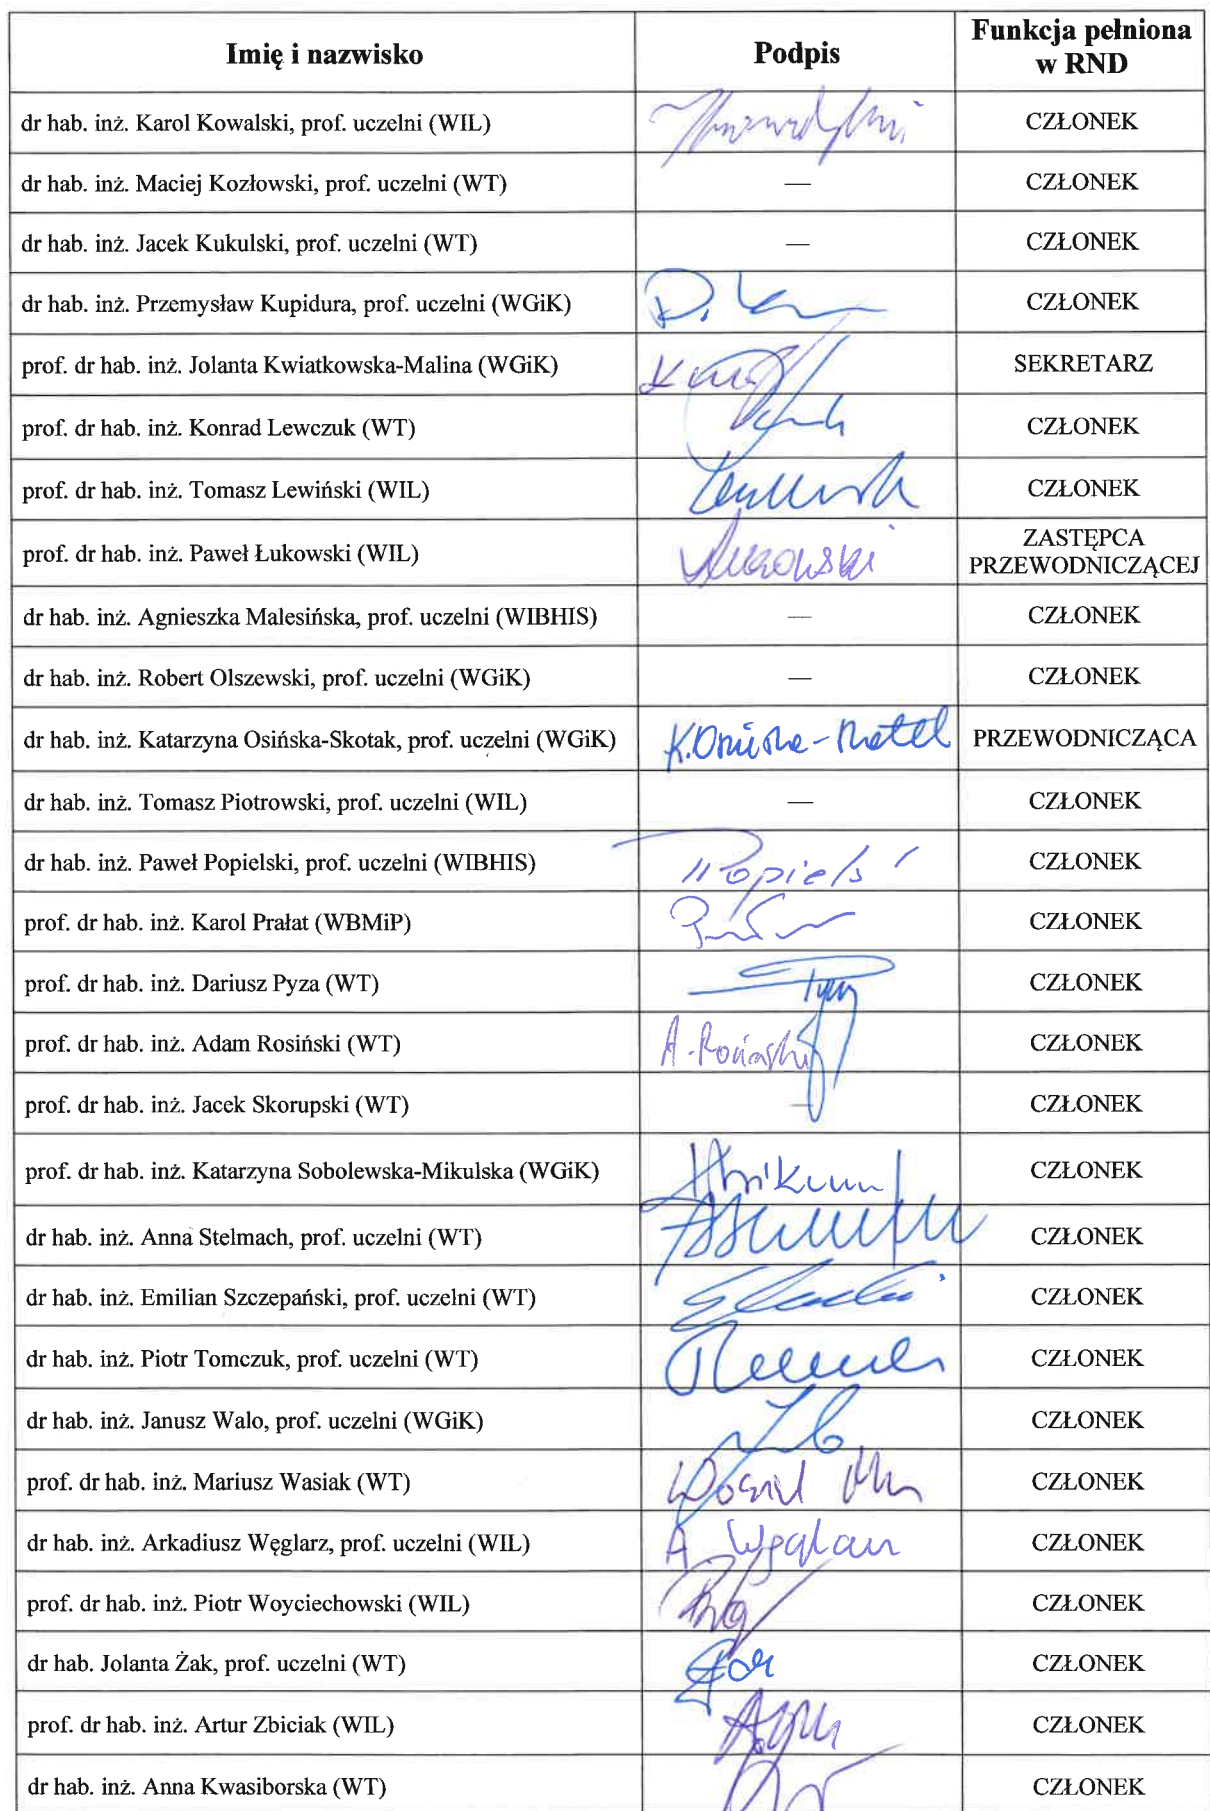 Imię i nazwisko Podpis Funkcja pełniona w RND
dr hab. inż. Karol Kowalski, prof. uczelni (WIL) CZŁONEK
dr hab. inż. Maciej Kozłowski, prof. uczelni (WT) — CZŁONEK
dr hab. inż. Jacek Kukulski, prof. uczelni (WT) — CZŁONEK
dr hab. inż. Przemysław Kupidura, prof. uczelni (WGiK) CZŁONEK
prof. dr hab. inż. Jolanta Kwiatkowska-Malina (WGiK) SEKRETARZ
prof. dr hab. inż. Konrad Lewczuk (WT) CZŁONEK
prof. dr hab. inż. Tomasz Lewiński (WIL) CZŁONEK
prof. dr hab. inż. Paweł Łukowski (WIL) ZASTĘPCA PRZEWODNICZĄCEJ
dr hab. inż. Agnieszka Malesińska, prof. uczelni (WIBHIS) — CZŁONEK
dr hab. inż. Robert Olszewski, prof. uczelni (WGiK) — CZŁONEK
dr hab. inż. Katarzyna Osińska-Skotak, prof. uczelni (WGiK) PRZEWODNICZĄCA
dr hab. inż. Tomasz Piotrowski, prof. uczelni (WIL) — CZŁONEK
dr hab. inż. Paweł Popielski, prof. uczelni (WIBHIS) CZŁONEK
prof. dr hab. inż. Karol Prałat (WBMiP) CZŁONEK
prof. dr hab. inż. Dariusz Pyza (WT) CZŁONEK
prof. dr hab. inż. Adam Rosiński (WT) A. Rosiński CZŁONEK
prof. dr hab. inż. Jacek Skorupski (WT) — CZŁONEK
prof. dr hab. inż. Katarzyna Sobolewska-Mikulska (WGiK) CZŁONEK
dr hab. inż. Anna Stelmach, prof. uczelni (WT) CZŁONEK
dr hab. inż. Emilian Szczepański, prof. uczelni (WT) CZŁONEK
dr hab. inż. Piotr Tomczuk, prof. uczelni (WT) CZŁONEK
dr hab. inż. Janusz Walo, prof. uczelni (WGiK) CZŁONEK
prof. dr hab. inż. Mariusz Wasiak (WT) CZŁONEK
dr hab. inż. Arkadiusz Węglarz, prof. uczelni (WIL) A Węglarz CZŁONEK
prof. dr hab. inż. Piotr Woyciechowski (WIL) CZŁONEK
dr hab. Jolanta Żak, prof. uczelni (WT) CZŁONEK
prof. dr hab. inż. Artur Zbiciak (WIL) CZŁONEK
dr hab. inż. Anna Kwasiborska (WT) CZŁONEK